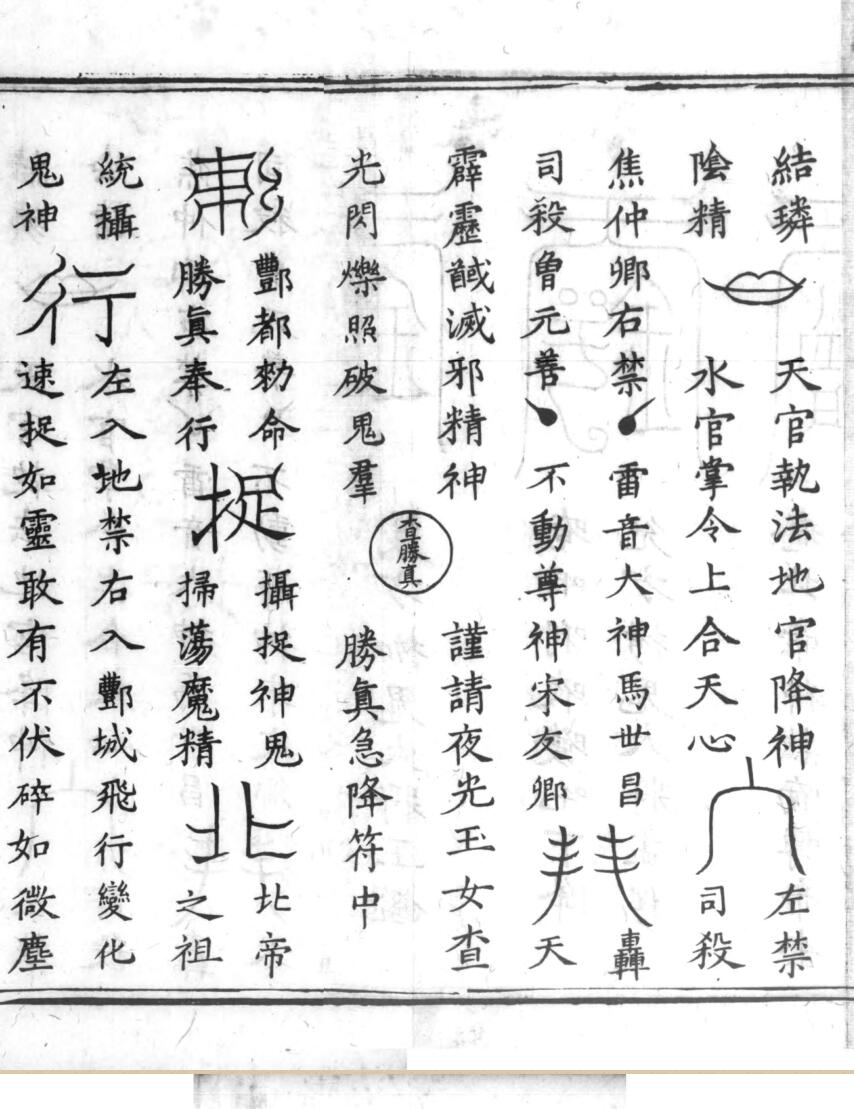 結璘 天官執法地官降神 左禁
陰精 水官掌令上合天心 司殺
焦仲卿右禁 雷音大神馬世昌 轟
司殺魯元善 不動尊神宋友卿 天
霹靂馘滅邪精神 謹請夜光玉女查
光閃爍照破鬼羣 查勝真 勝真急降符中
酆都勑命 攝捉神鬼 北帝
勝真奉行 捉 掃蕩魔精 北 之祖
統攝 左入地禁右入酆城飛行變化
鬼神 行 速捉如靈敢有不伏碎如微塵